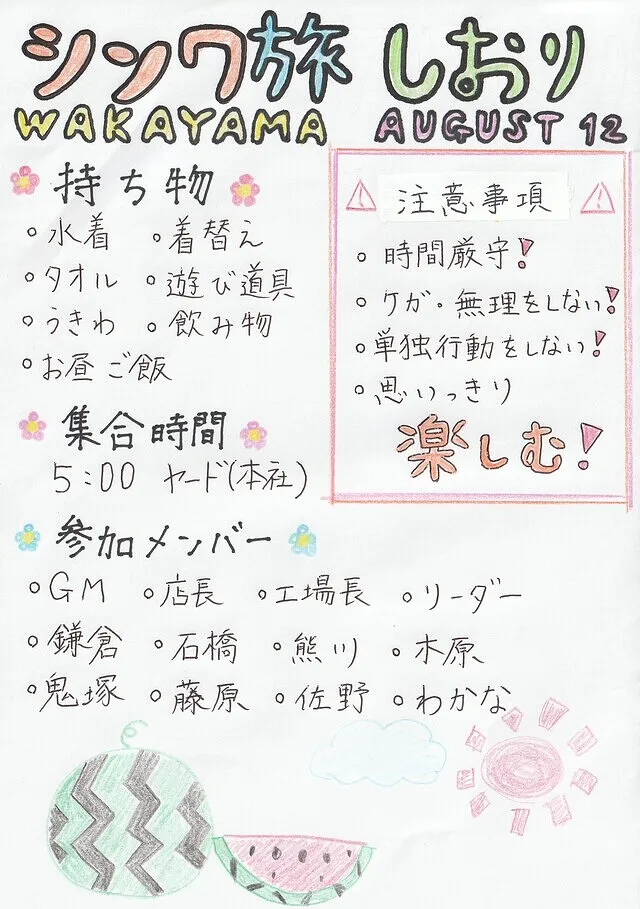 シンワ旅 しおり
WAKAYAMA AUGUST 12
持ち物
・水着 ・着替え
・タオル ・遊び道具
・うきわ ・飲み物
・お昼ご飯
集合時間
5:00 ヤード(本社)
注意事項
・時間厳守!
・ケガ・無理をしない!
・単独行動をしない!
・思いっきり
楽しむ!
参加メンバー
・GM ・店長 ・工場長 ・リーダー
・鎌倉 ・石橋 ・熊川 ・木原
・鬼塚 ・藤原 ・佐野 ・わかな